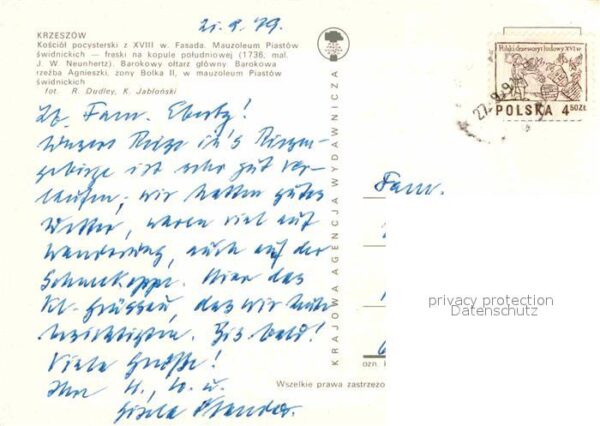 21.9.79.
KRZESZÓW
Kościół pocysterski z XVIII w. Fasada. Mauzoleum Piastów
świdnickich — freski na kopule południowej (1736, mal.
J. W. Neunhertz). Barokowy ołtarz główny. Barokowa
rzeźba Agnieszki, żony Bolka II, w mauzoleum Piastów
świdnickich
fot. R. Dudley, K. Jabłoński
Lb. Fam. Eberty!
Unsere Reise in's Riesen-
gebirge ist sehr gut ver-
laufen; wir hatten gutes
Wetter, waren viel auf
Wanderung, auch auf der
Schneekoppe. Hier das
Kl. Grüssau, das wir
besichtigten. Bis bald!
Viele Grüße!
Ihre H., u.
Gisela
KRAJOWA AGENCJA WYDAWNICZA
Polskie drzeworyt ludowy XVI w.
POLSKA 4.50ZŁ
Fam.
privacy protection
Datenschutz
ozn. k
Wszelkie prawa zastrzeżo